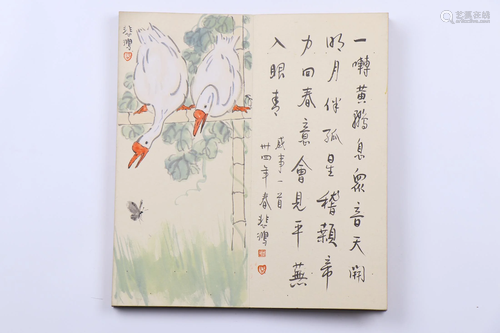 一囀黃鸝息眾音天開
明月伴孤星稽顙帝
力回春意會見平蕪
入眼青
感事一首
卅四年春悲鴻
悲鴻